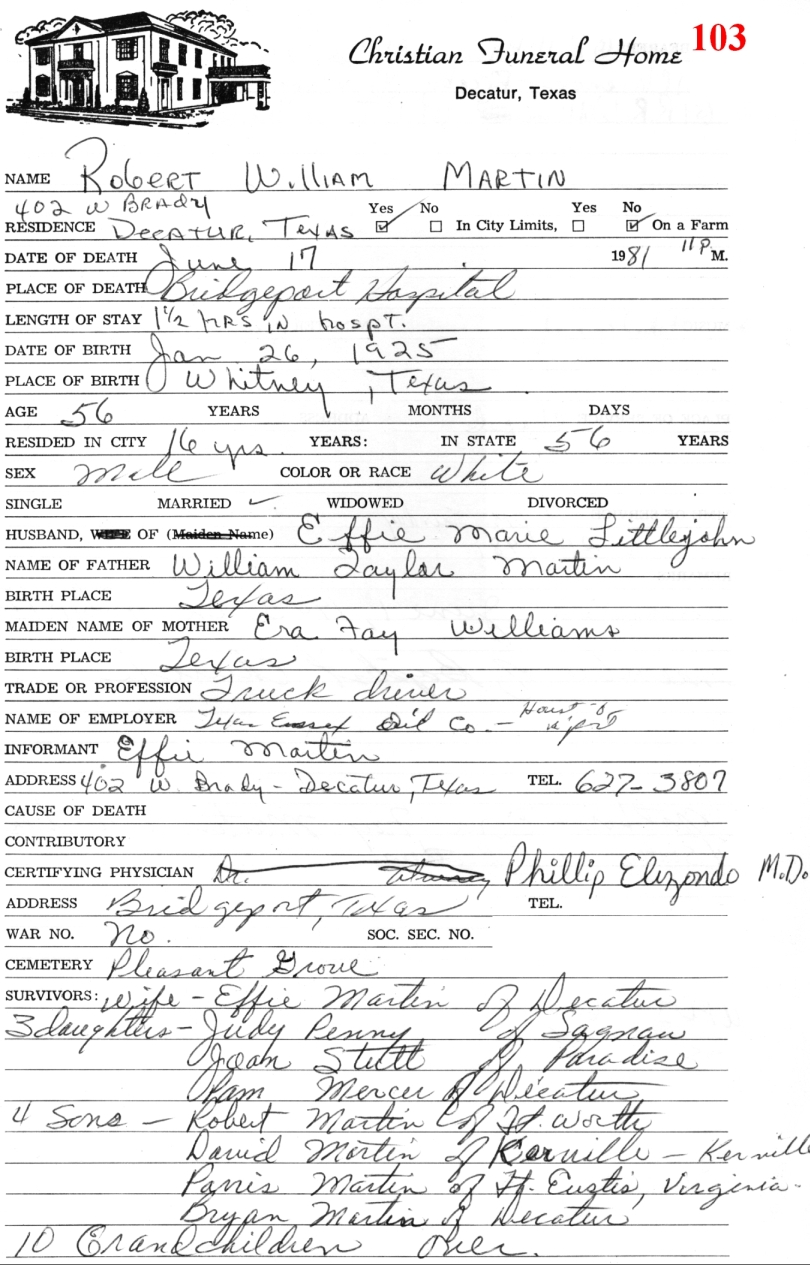 Christian Funeral Home 103
Decatur, Texas
NAME Robert William Martin
402 W Brady Yes No Yes No
RESIDENCE Decatur, Texas ☑ ☐ In City Limits, ☐ ☑ On a Farm
DATE OF DEATH June 17 1981 11 P M.
PLACE OF DEATH Bridgeport Hospital
LENGTH OF STAY 1 1/2 hrs in hospt.
DATE OF BIRTH Jan 26, 1925
PLACE OF BIRTH Whitney, Texas
AGE 56 YEARS MONTHS DAYS
RESIDED IN CITY 16 yrs. YEARS: IN STATE 56 YEARS
SEX Male COLOR OR RACE White
SINGLE MARRIED ✓ WIDOWED DIVORCED
HUSBAND, WIFE OF (Maiden Name) Effie Marie Littlejohn
NAME OF FATHER William Taylor Martin
BIRTH PLACE Texas
MAIDEN NAME OF MOTHER Era Fay Williams
BIRTH PLACE Texas
TRADE OR PROFESSION Truck driver
NAME OF EMPLOYER Texas Essex Oil Co. -
INFORMANT Effie Martin
ADDRESS 402 W. Brady - Decatur, Texas TEL. 627-3807
CAUSE OF DEATH
CONTRIBUTORY
CERTIFYING PHYSICIAN Dr. Phillip Elizondo M.D.
ADDRESS Bridgeport, Texas TEL.
WAR NO. No. SOC. SEC. NO.
CEMETERY Pleasant Grove
SURVIVORS: Wife - Effie Martin of Decatur
3 daughters - Judy Penny of Sagnau
Joan Stutt of Paradise
Pam Mercer of Decatur
4 Sons - Robert Martin of Ft. Worth
David Martin of Kerville - Kerville
Parris Martin of Ft. Eustis, Virginia -
Bryan Martin of Decatur
10 Grandchildren over.